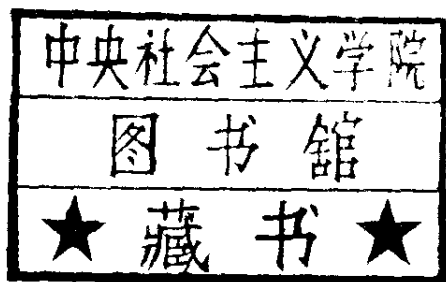 中央社会主义学院
图书舘
★藏书★